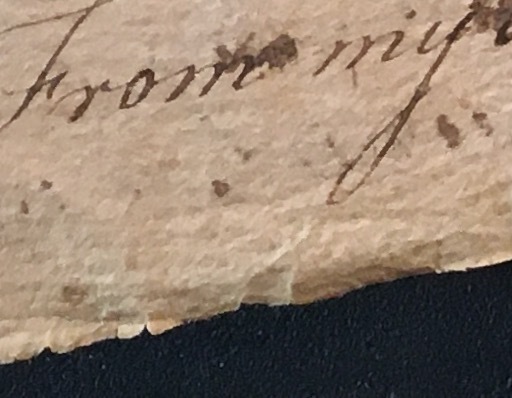 From my